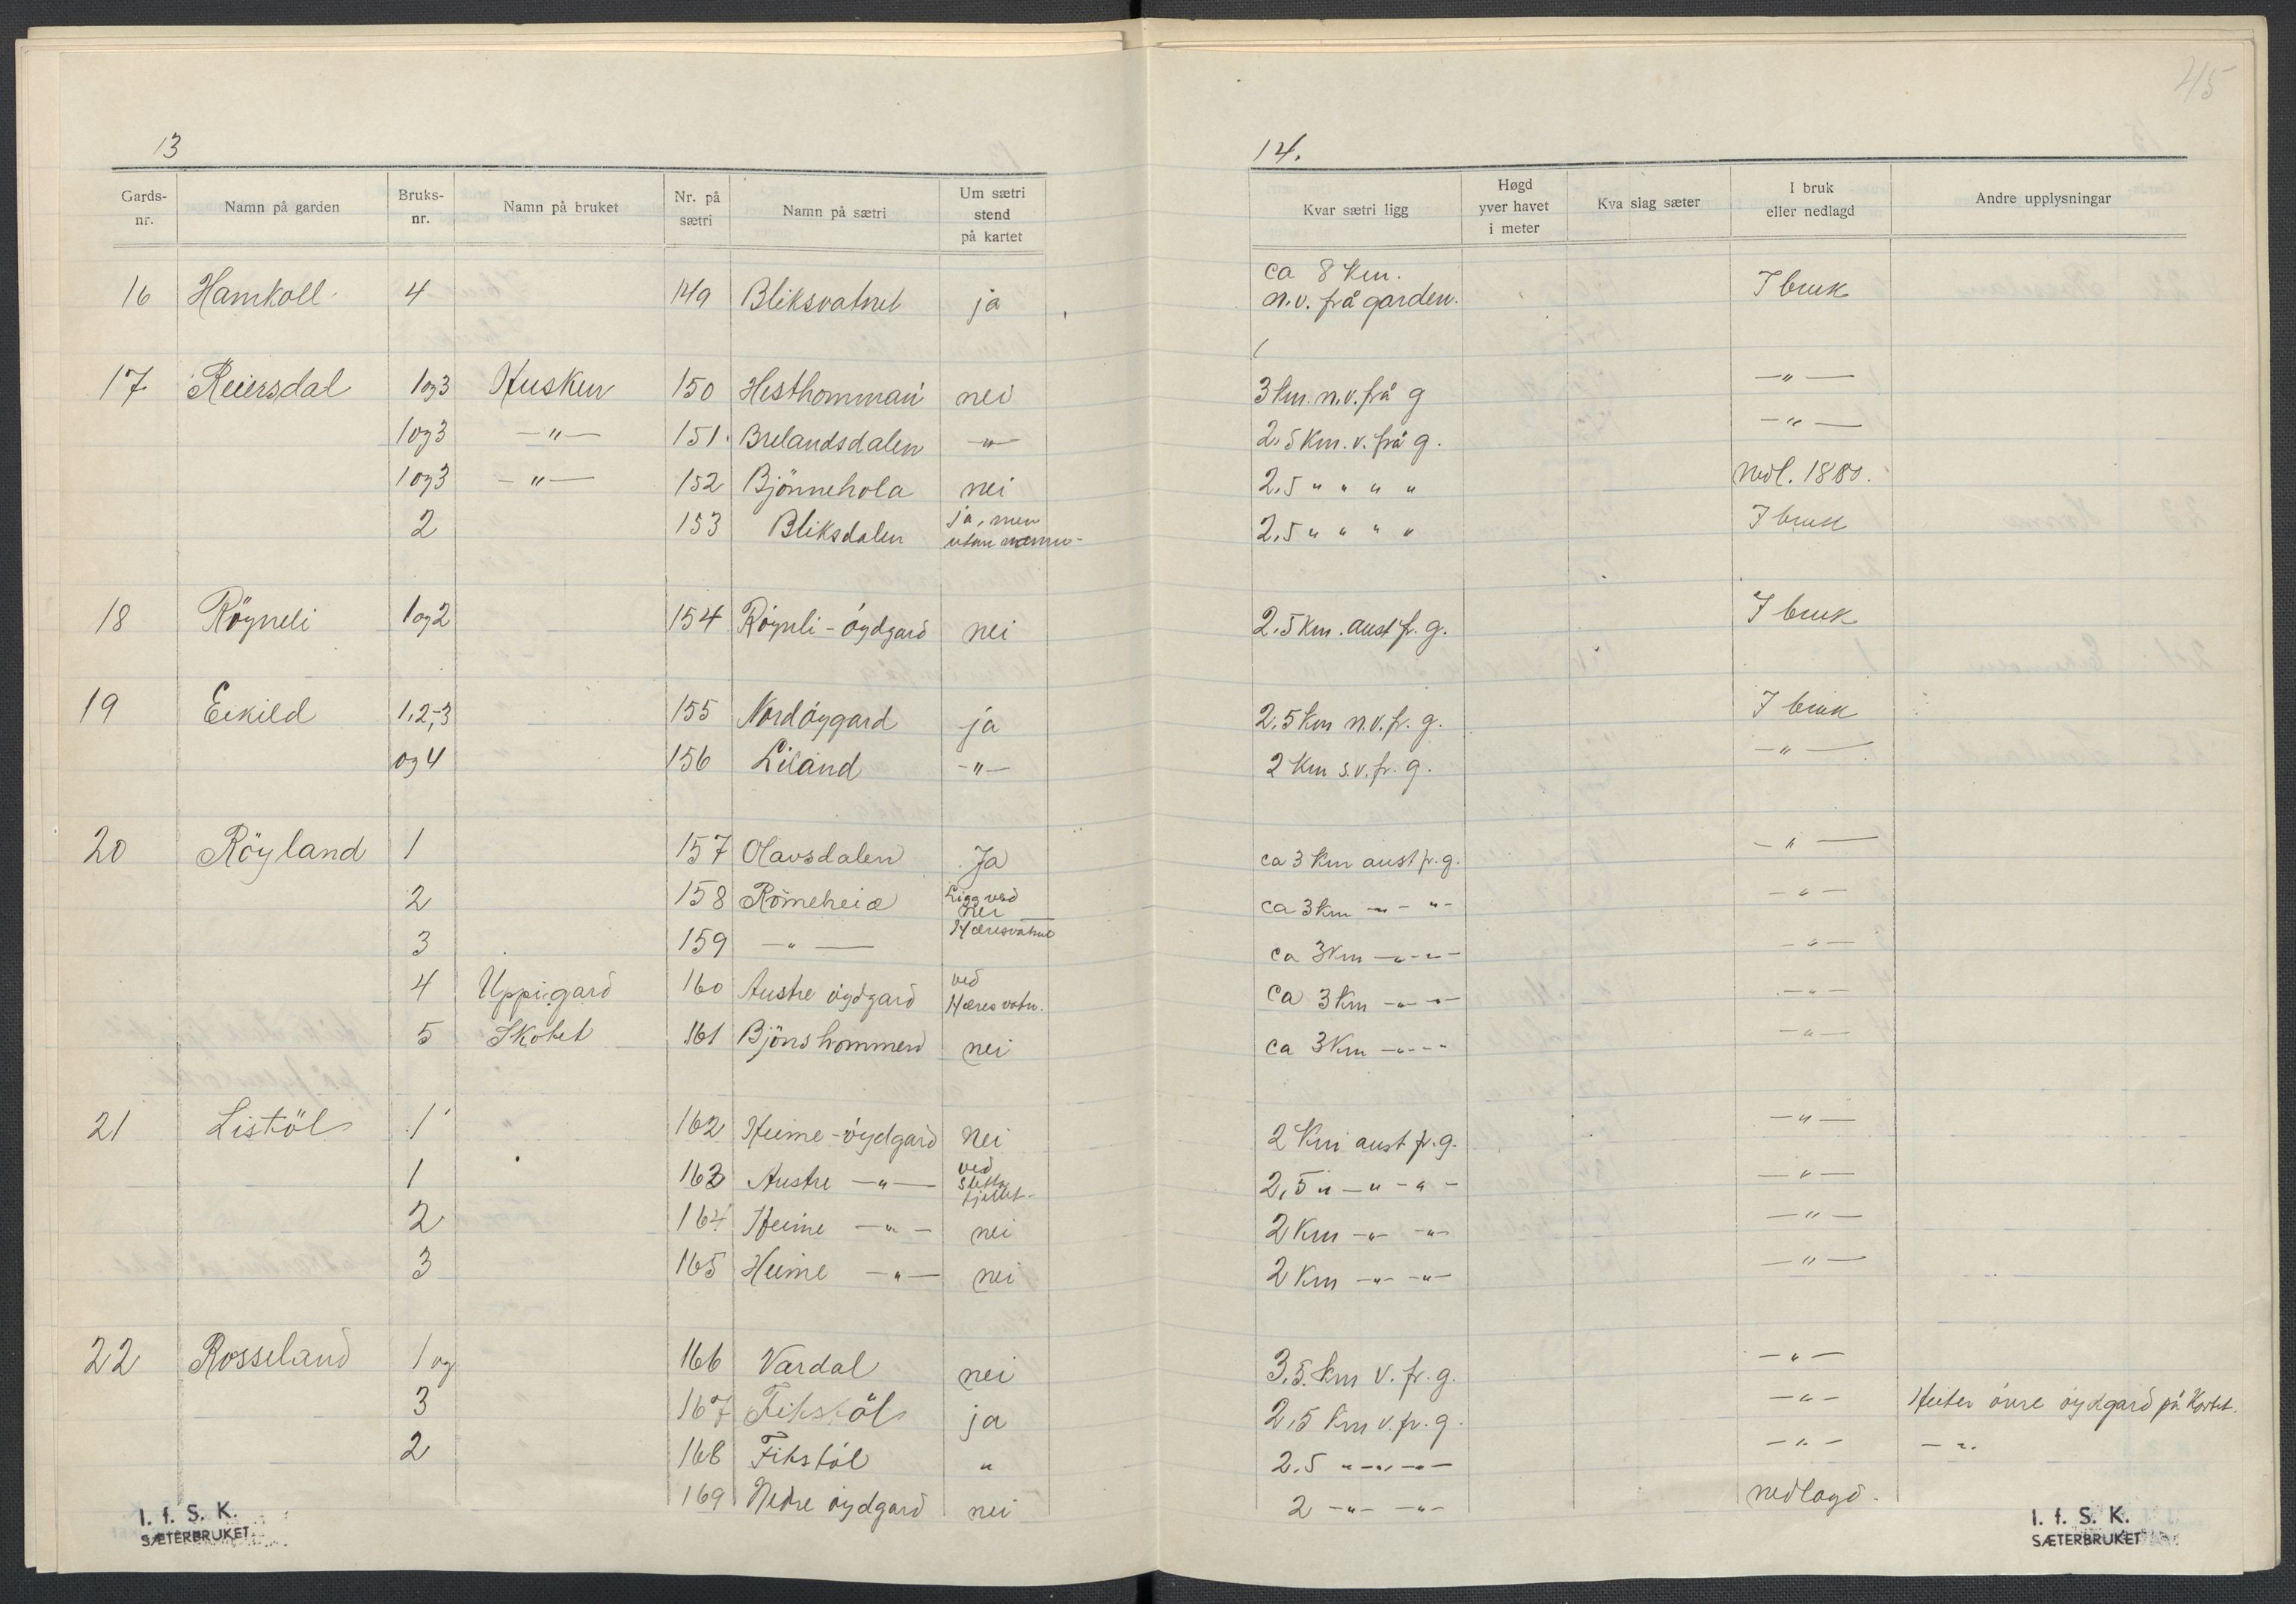 45
13
Gards-nr. Namn på garden Bruks-nr. Namn på bruket Nr. på sætri Namn på sætri Um sætri stend på kartet
16 Hamkoll 4 149 Bliksvatnet ja
17 Reiersdal 1og3 Husken 150 Hesthomman nei
1og3 —"— 151. Brelandsdalen —"—
1og3 —"— 152 Bjönnehola nei
2 153 Bliksdalen ja, men utan namn-
18 Röyneli 1og2 154 Röynli-öydgard nei
19 Eikild 1,2,3 155 Nordöygard ja
og 4 156 Liland —"—
20 Röyland 1 157 Olavsdalen Ja
2 158 Römeheia Ligg ved nei
3 159 —"— Hæresvatnet
4 Uppigard 160 Austre öydgard ved Hæresvatn.
5 Skotet 161 Bjönshommen nei
21 Listöl 1 162 Heime-öydgard Nei
1 163 Austre —"— ved
2 164 Heime —"— nei
3 165 Heime —"— nei
22 Rosseland 1 og 166 Vardal nei
3 167 Fikstöl ja
2 168 Fikstöl "
169 Nedre öydgard nei
I. f. S. K.
SÆTERBRUKET
14.
Kvar sætri ligg Høgd yver havet i meter Kva slag sæter I bruk eller nedlagd Andre upplysningar
ca 8 km.
n.v. frå garden. I bruk
3 km. n.v. frå g —"—
2,5 km. v. frå g. —"—
2,5 " " " " nedl. 1880.
2,5 " " " " I bruk
2,5 km. aust fr. g. I bruk
2,5 km n.v. fr. g. I bruk
2 km s.v. fr. g. —"—
ca 3 km aust fr. g. —"—
ca 3 km —"— "— —"—
ca 3 km —"—"— —"—
ca 3 km —"—"— —"—
ca 3 km —"—"— —"—
2 km aust fr. g. —"—
2,5 " —"—"— —"—
2 km —"— —"— —"—
2 km —"— —"— —"—
3,5. km v. fr. g. —"—
2,5 km v. fr. g. —"— Heiter övre öydgard på Kartet.
2,5 "—"—"— —"— —"—
2 —"— —"— nedlagd.
I. f. S. K.
SÆTERBRUKET